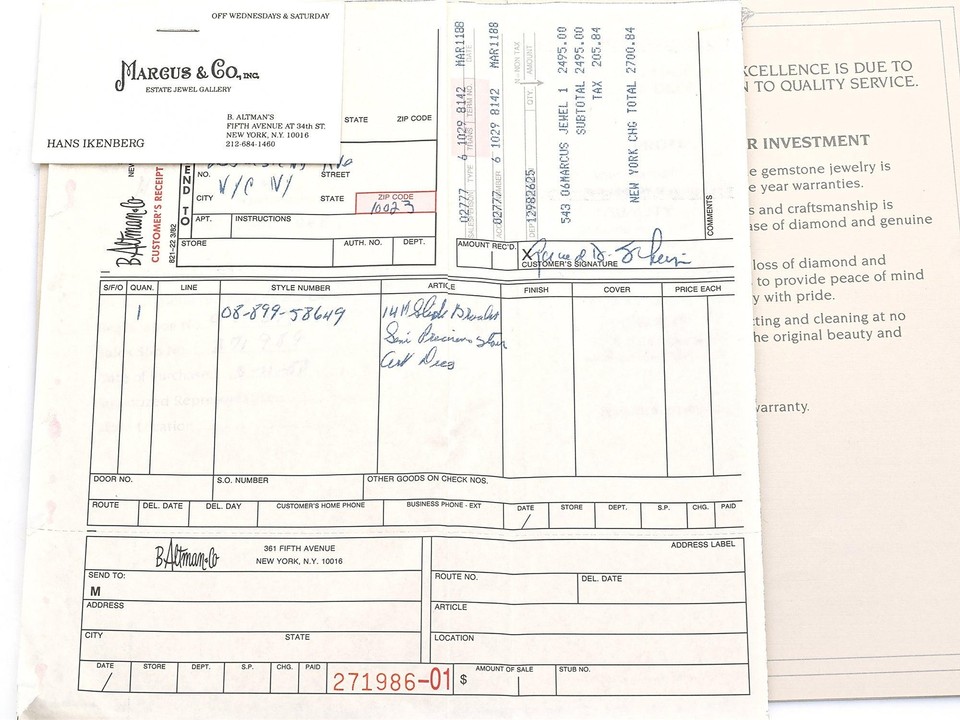 OFF WEDNESDAYS & SATURDAY
MARCUS & CO., INC.
ESTATE JEWEL GALLERY
B. ALTMAN'S
FIFTH AVENUE AT 34th ST.
NEW YORK, N.Y. 10016
212-684-1460
HANS IKENBERG
STATE ZIP CODE
NO. STREET
NYC NY
CITY STATE ZIP CODE
10023
APT. INSTRUCTIONS
STORE AUTH. NO. DEPT.
END TO
B. Altman & Co
CUSTOMER'S RECEIPT
821-22 3/82
02777 6 1029 8142 MAR1188
02777 6 1029 8142 MAR1188
N-NON TAX
QTY. AMOUNT
DEP12982625
543 06MARCUS JEWEL 1 2495.00
SUBTOTAL 2495.00
TAX 205.84
NEW YORK CHG TOTAL 2700.84
COMMENTS
AMOUNT REC'D.
X
CUSTOMER'S SIGNATURE
S/F/O QUAN. LINE STYLE NUMBER ARTICLE FINISH COVER PRICE EACH
1 08-899-58649 14K Slide Bracelet
Semi Precious Stone
DOOR NO. S.O. NUMBER OTHER GOODS ON CHECK NOS.
ROUTE DEL. DATE DEL. DAY CUSTOMER'S HOME PHONE BUSINESS PHONE - EXT DATE / STORE DEPT. S.P. CHG. PAID
B. Altman & Co
361 FIFTH AVENUE
NEW YORK, N.Y. 10016
SEND TO:
M
ADDRESS
CITY STATE
DATE / STORE DEPT. S.P. CHG. PAID
271986-01
ADDRESS LABEL
ROUTE NO. DEL. DATE
ARTICLE
LOCATION
$ AMOUNT OF SALE STUB NO.
XCELLENCE IS DUE TO
N TO QUALITY SERVICE.
R INVESTMENT
e gemstone jewelry is
e year warranties.
s and craftsmanship is
ase of diamond and genuine
loss of diamond and
to provide peace of mind
y with pride.
tting and cleaning at no
he original beauty and
warranty.